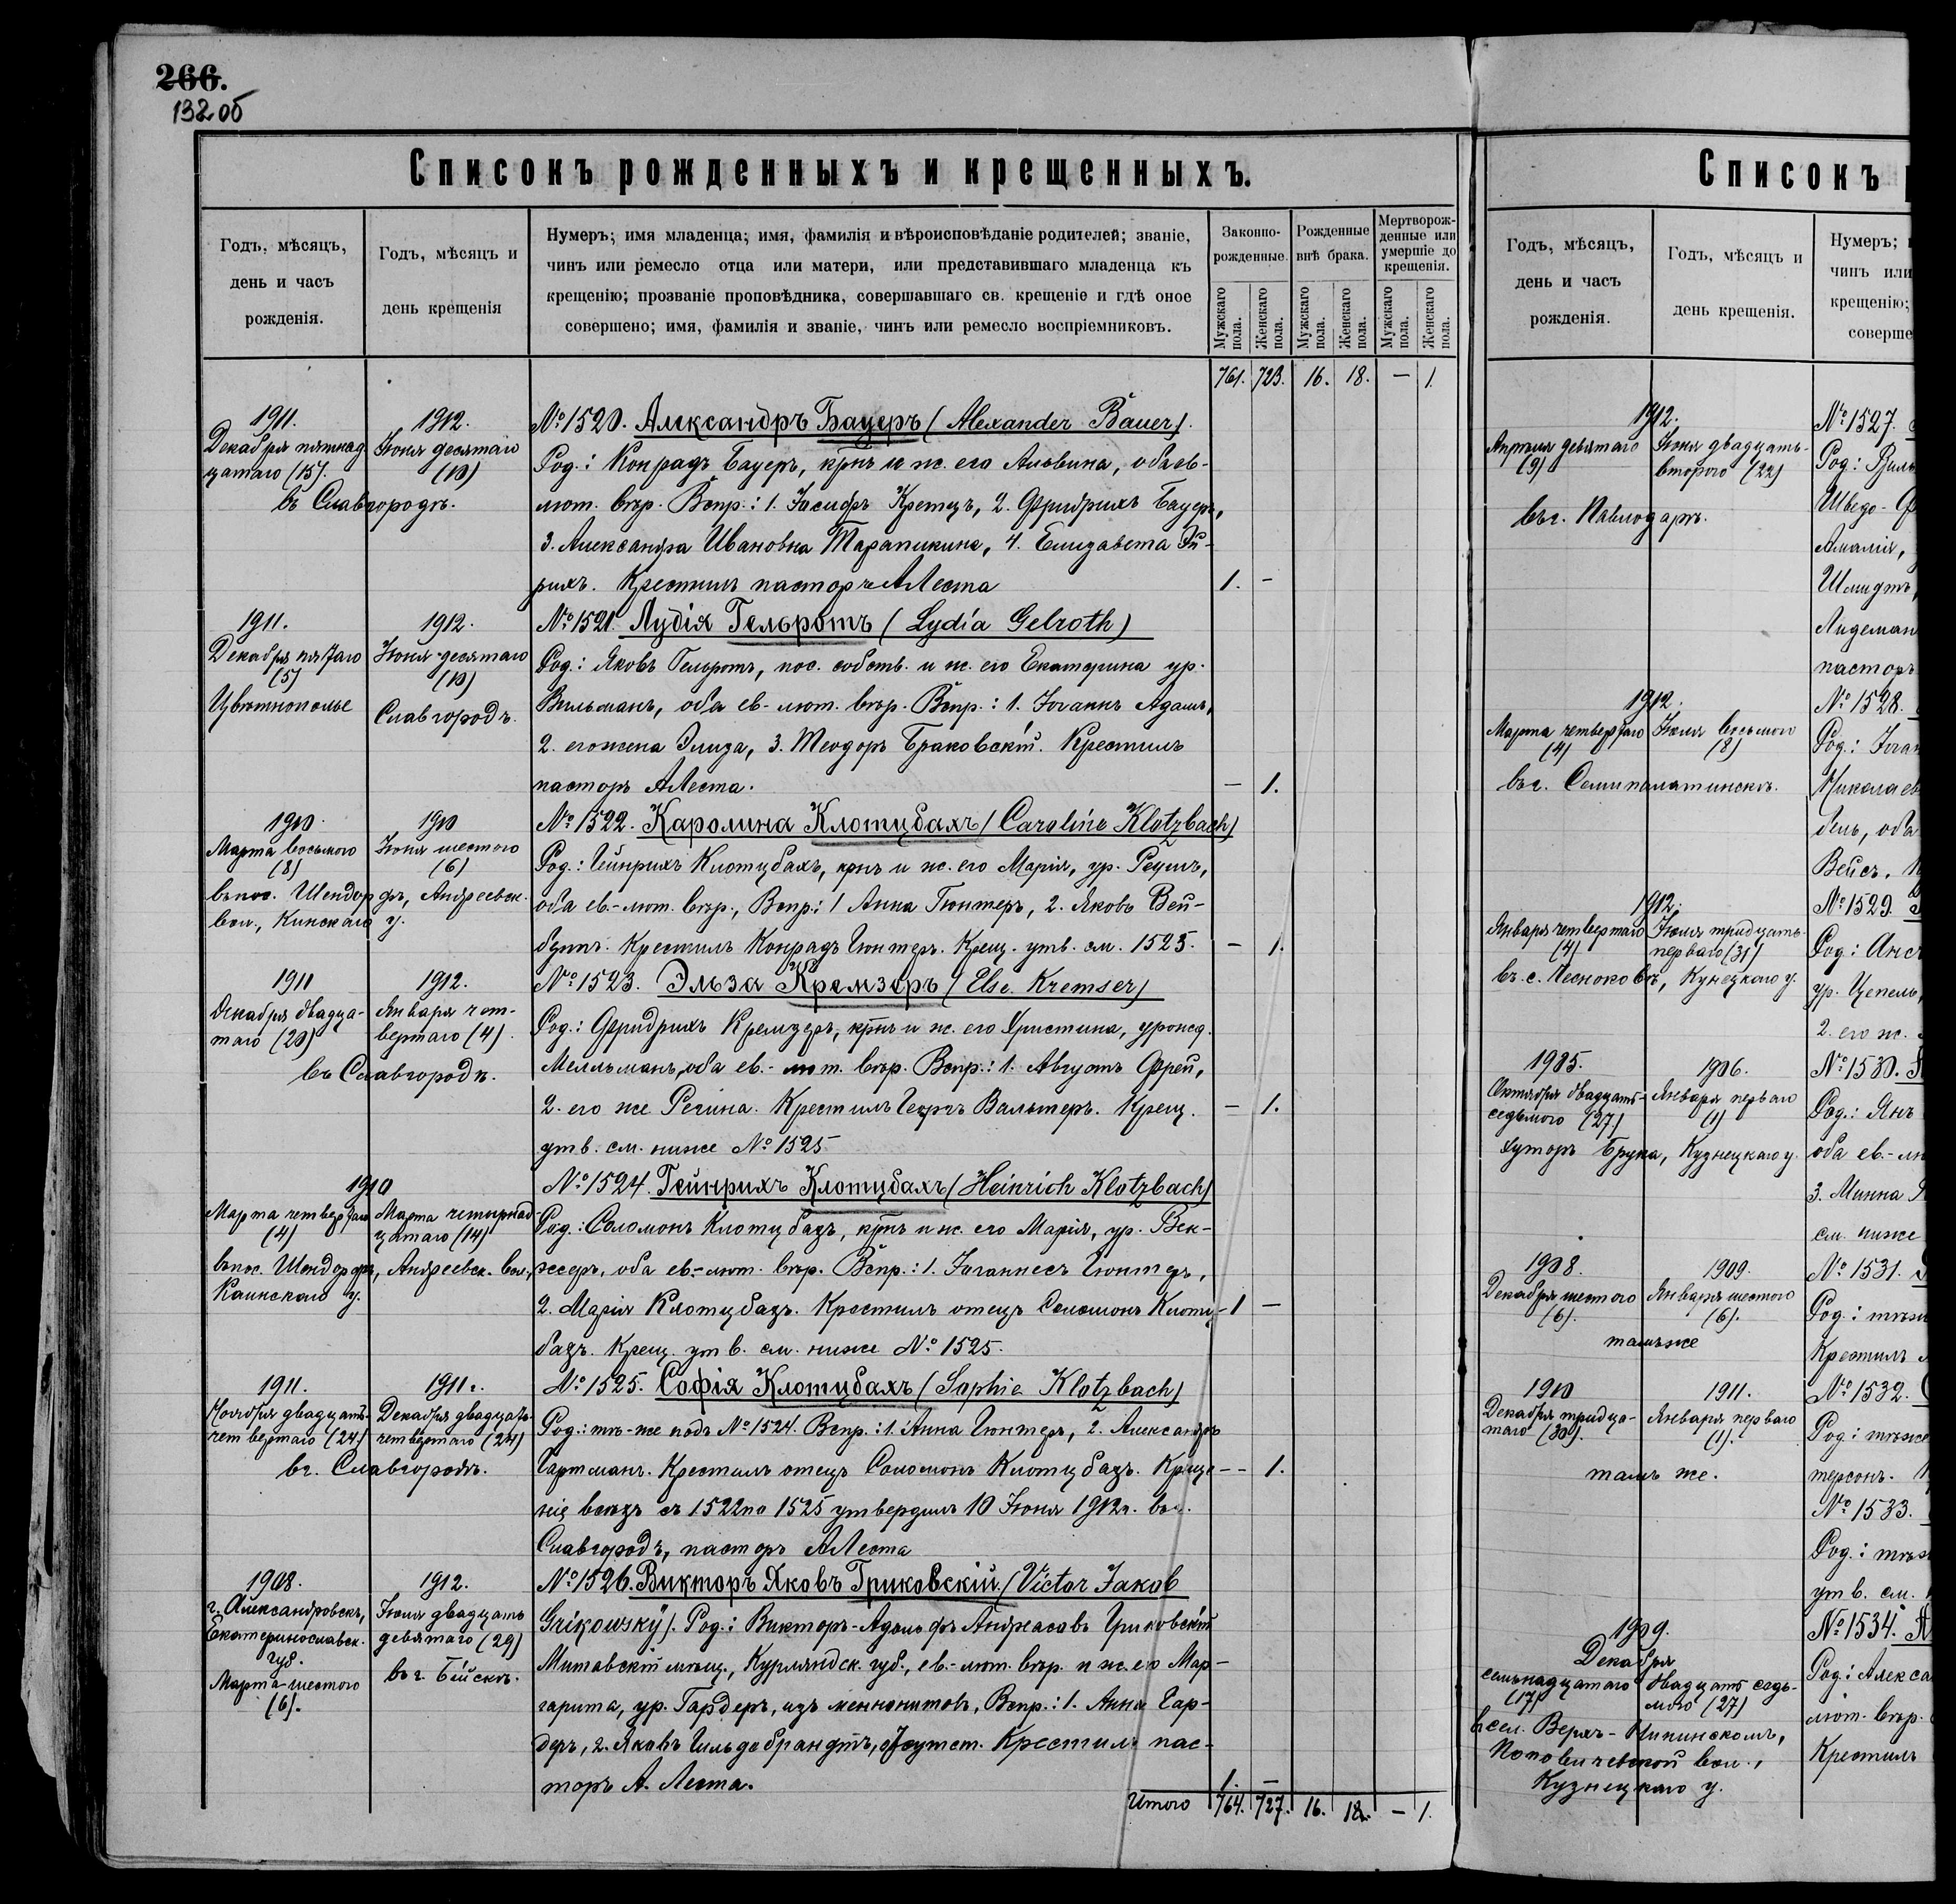 266.
132 об
Списокъ рожденныхъ и крещенныхъ.
Годъ, мѣсяцъ,
день и часъ
рожденія.
Годъ, мѣсяцъ и
день крещенія
Нумеръ; имя младенца; имя, фамилія и вѣроисповѣданіе родителей; званіе,
чинъ или ремесло отца или матери, или представившаго младенца къ
крещенію; прозваніе проповѣдника, совершавшаго св. крещеніе и гдѣ оное
совершено; имя, фамилія и званіе, чинъ или ремесло воспріемниковъ.
Законно-
рожденные.
Рожденные
внѣ брака.
Мертворож-
денные или
умершіе до
крещенія.
Мужскаго пола.
Женскаго пола.
Мужскаго пола.
Женскаго пола.
Мужскаго пола.
Женскаго пола.
761. 723. 16. 18. — 1.
1911.
Декабря пятнад
цатаго (15).
1912.
Іюня десятаго
(10)
въ Славгородѣ.
№ 1520. Александръ Бауеръ (Alexander Bauer).
Род.: Конрадъ Бауеръ, крнъ и ж. его Альвина, оба ев-
лют. вѣр. Вспр.: 1. Іосифъ Кретцъ, 2. Фридрихъ Бауеръ,
3. Александра Ивановна Тарапыкина, 4. Елизавета Эй-
рихъ. Крестилъ пасторъ АЛеста
1. —
1911.
Декабря пятаго
(5)
Цвѣтнополье
1912.
Іюня десятаго
(10)
Славгородъ.
№ 1521. Лудія Гельротъ (Lydia Gelroth)
Род.: Яковъ Гельротъ, пос. собств. и ж. его Екатерина ур.
Вельманъ, оба ев.-лют. вѣр. Вспр.: 1. Іоганнъ Адамъ,
2. его жена Элиза, 3. Теодоръ Браковскій. Крестилъ
пасторъ АЛеста.
— 1.
1910.
Марта восьмого
(8)
1910
Іюня шестого
(6)
въ пос. Шендорфъ, Андреевск.
вол., Кинскаго у.
№ 1522. Каролина Клотцбахъ (Caroline Klotzbach)
Род.: Гейнрихъ Клотцбахъ, крнъ и ж. его Марія, ур. Реушъ,
оба ев.-лют. вѣр., Вспр.: 1 Анна Гюнтеръ, 2. Яковъ Вей-
бентъ. Крестилъ Конрадъ Гюнтеръ. Крещ. утв. см. 1525.
— 1.
1911
Декабря двадца-
таго (20)
1912.
Января чет-
вертаго (4).
въ Славгородѣ.
№ 1523. Эльза Кремзеръ (Else Kremser)
Род.: Фридрихъ Кремзеръ, крнъ и ж. его Христина, урожд.
Мелльманъ, оба ев.-лют. вѣр. Вспр.: 1. Августъ Фрей,
2. его же Регина. Крестилъ Георгъ Вальтеръ. Крещ.
утв. см. ниже № 1525
— 1.
1910
Марта четвертаго
(4)
Марта четырнад
цатаго (14)
въ пос. Шендорфъ, Андреевск. вол.,
Каинскаго у.
№ 1524. Гейнрихъ Клотцбахъ (Heinrich Klotzbach)
Род.: Соломонъ Клотцбахъ, крнъ и ж. его Марія, ур. Век-
кесеръ, оба ев.-лют. вѣр. Вспр.: 1. Іоганнесъ Гюнтеръ,
2. Марія Клотцбахъ. Крестилъ отецъ Соломонъ Клотц-
бахъ. Крещ. утв. см. ниже № 1525.
1 —
1911.
Ноября двадцать-
четвертаго (24)
1911.
Декабря двадцать-
четвертаго (24)
въ г. Славгородѣ.
№ 1525. Софія Клотцбахъ (Sophie Klotzbach)
Род.: тѣ-же подъ № 1524. Вспр.: 1. Анна Гюнтеръ, 2. Александръ
Гартманъ. Крестилъ отецъ Соломонъ Клотцбахъ. Креще-
ніе всѣхъ съ 1522 по 1525 утвердилъ 10 Іюня 1912 г. въ г.
Славгородѣ, пасторъ АЛеста
— 1.
1908.
г. Александровскъ,
Екатеринославск.
губ.
Марта шестого
(6).
1912.
Іюля двадцать
девятаго (29)
въ г. Бійскѣ.
№ 1526. Викторъ Яковъ Гриковскій. (Victor Jakob
Grikowsky). Род.: Викторъ-Адольфъ Андреасовъ Гриковскій
Митавскій мѣщ., Курляндск. губ., ев.-лют. вѣр. и ж. его Мар-
гарита, ур. Гардеръ, изъ меннонитовъ, Вспр.: 1. Анна Гар-
деръ, 2. Яковъ Гильдебрандтъ, отсутст. Крестилъ пас-
торъ А. Леста.
1. —
Итого 764. 727. 16. 18. — 1.
Списокъ
Годъ, мѣсяцъ,
день и часъ
рожденія.
Годъ, мѣсяцъ и
день крещенія.
Нумеръ;
чинъ или
крещенію;
соверше
1912.
Апрѣля девятаго
(9)
Іюня двадцать-
второго (22)
въ г. Павлодарѣ.
№ 1527.
Род.: Виль
Шведо-Ф
Амалія,
Шмидтъ,
Лидеман
пасторъ
1912.
Марта четвертаго
(4)
Іюля восьмого
(8)
въ г. Семипалатинскѣ.
№ 1528.
Род.: Іоган
Николаев
бель, оба
Вейсъ.
1912.
Января четвертаго
(4)
Іюля тридцать-
перваго (31)
въ с. Чесноковѣ, Кузнецкаго у.
№ 1529.
Род.: Анс
ур. Цепель,
2. его ж.
1905.
Октября двадцать-
седьмого (27)
1906.
Января перваго
(1)
Хуторъ Брука, Кузнецкаго у.
№ 1530.
Род.: Янъ
оба ев.-лю
3. Минна
см. ниже
1908.
Декабря шестого
(6).
1909.
Января шестого
(6).
тамъ же
№ 1531.
Род.: тѣж
Крестилъ
1910
Декабря тридца-
таго (30).
1911.
Января перваго
(1).
тамъ же.
№ 1532.
Род.: тѣже
терсонъ.
№ 1533.
Род.: тѣж
утв. см.
1909.
Декабря
семьнадцатаго
(17)
двадцать седь-
мого (27)
въ сел. Верхъ-
Поповичевской вол.,
Кузнецкаго у.
№ 1534.
Род.: Алекса
лют. вѣр.
Крестилъ